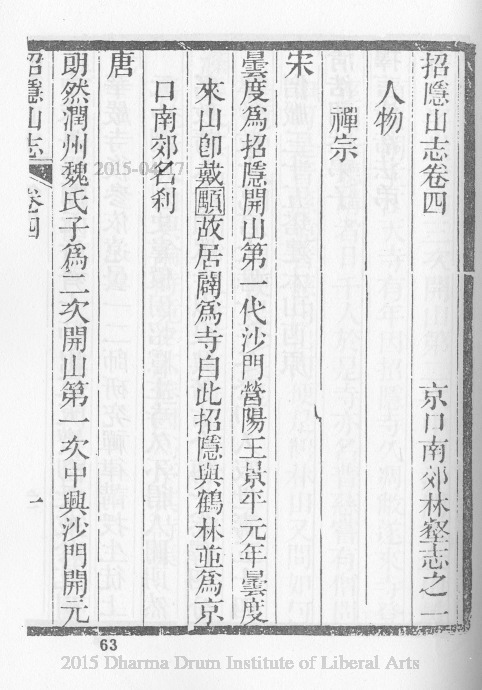 招隱山志卷四　京口南郊林壑志之一
人物
禪宗
宋
曇度為招隱開山第一代沙門營陽王景平元年曇度
來山卽戴顒故居闢為寺自此招隱與鶴林並為京
口南郊名刹
唐
朗然潤州魏氏子為二次開山第一次中興沙門開元
招隱山志 卷四 一
2015-04-17
63
2015 Dharma Drum Institute of Liberal Arts